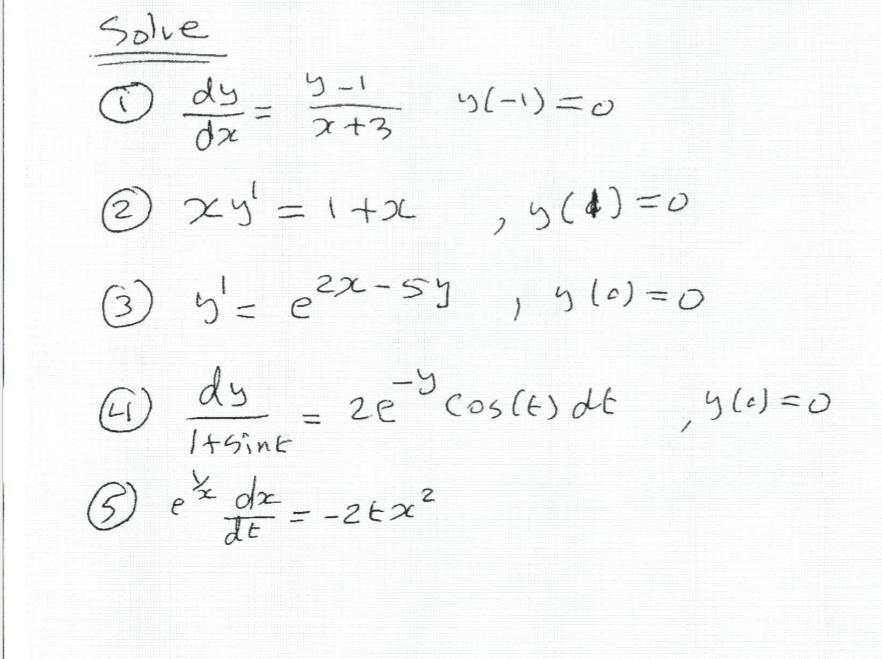 Solve
① dy/dx = (y-1)/(x+3) y(-1)=0
② xy' = 1+x , y(1)=0
③ y' = e^(2x-5y) , y(0)=0
④ dy/(1+sint) = 2e^(-y) cos(t) dt , y(0)=0
⑤ e^(1/x) dx/dt = -2tx²